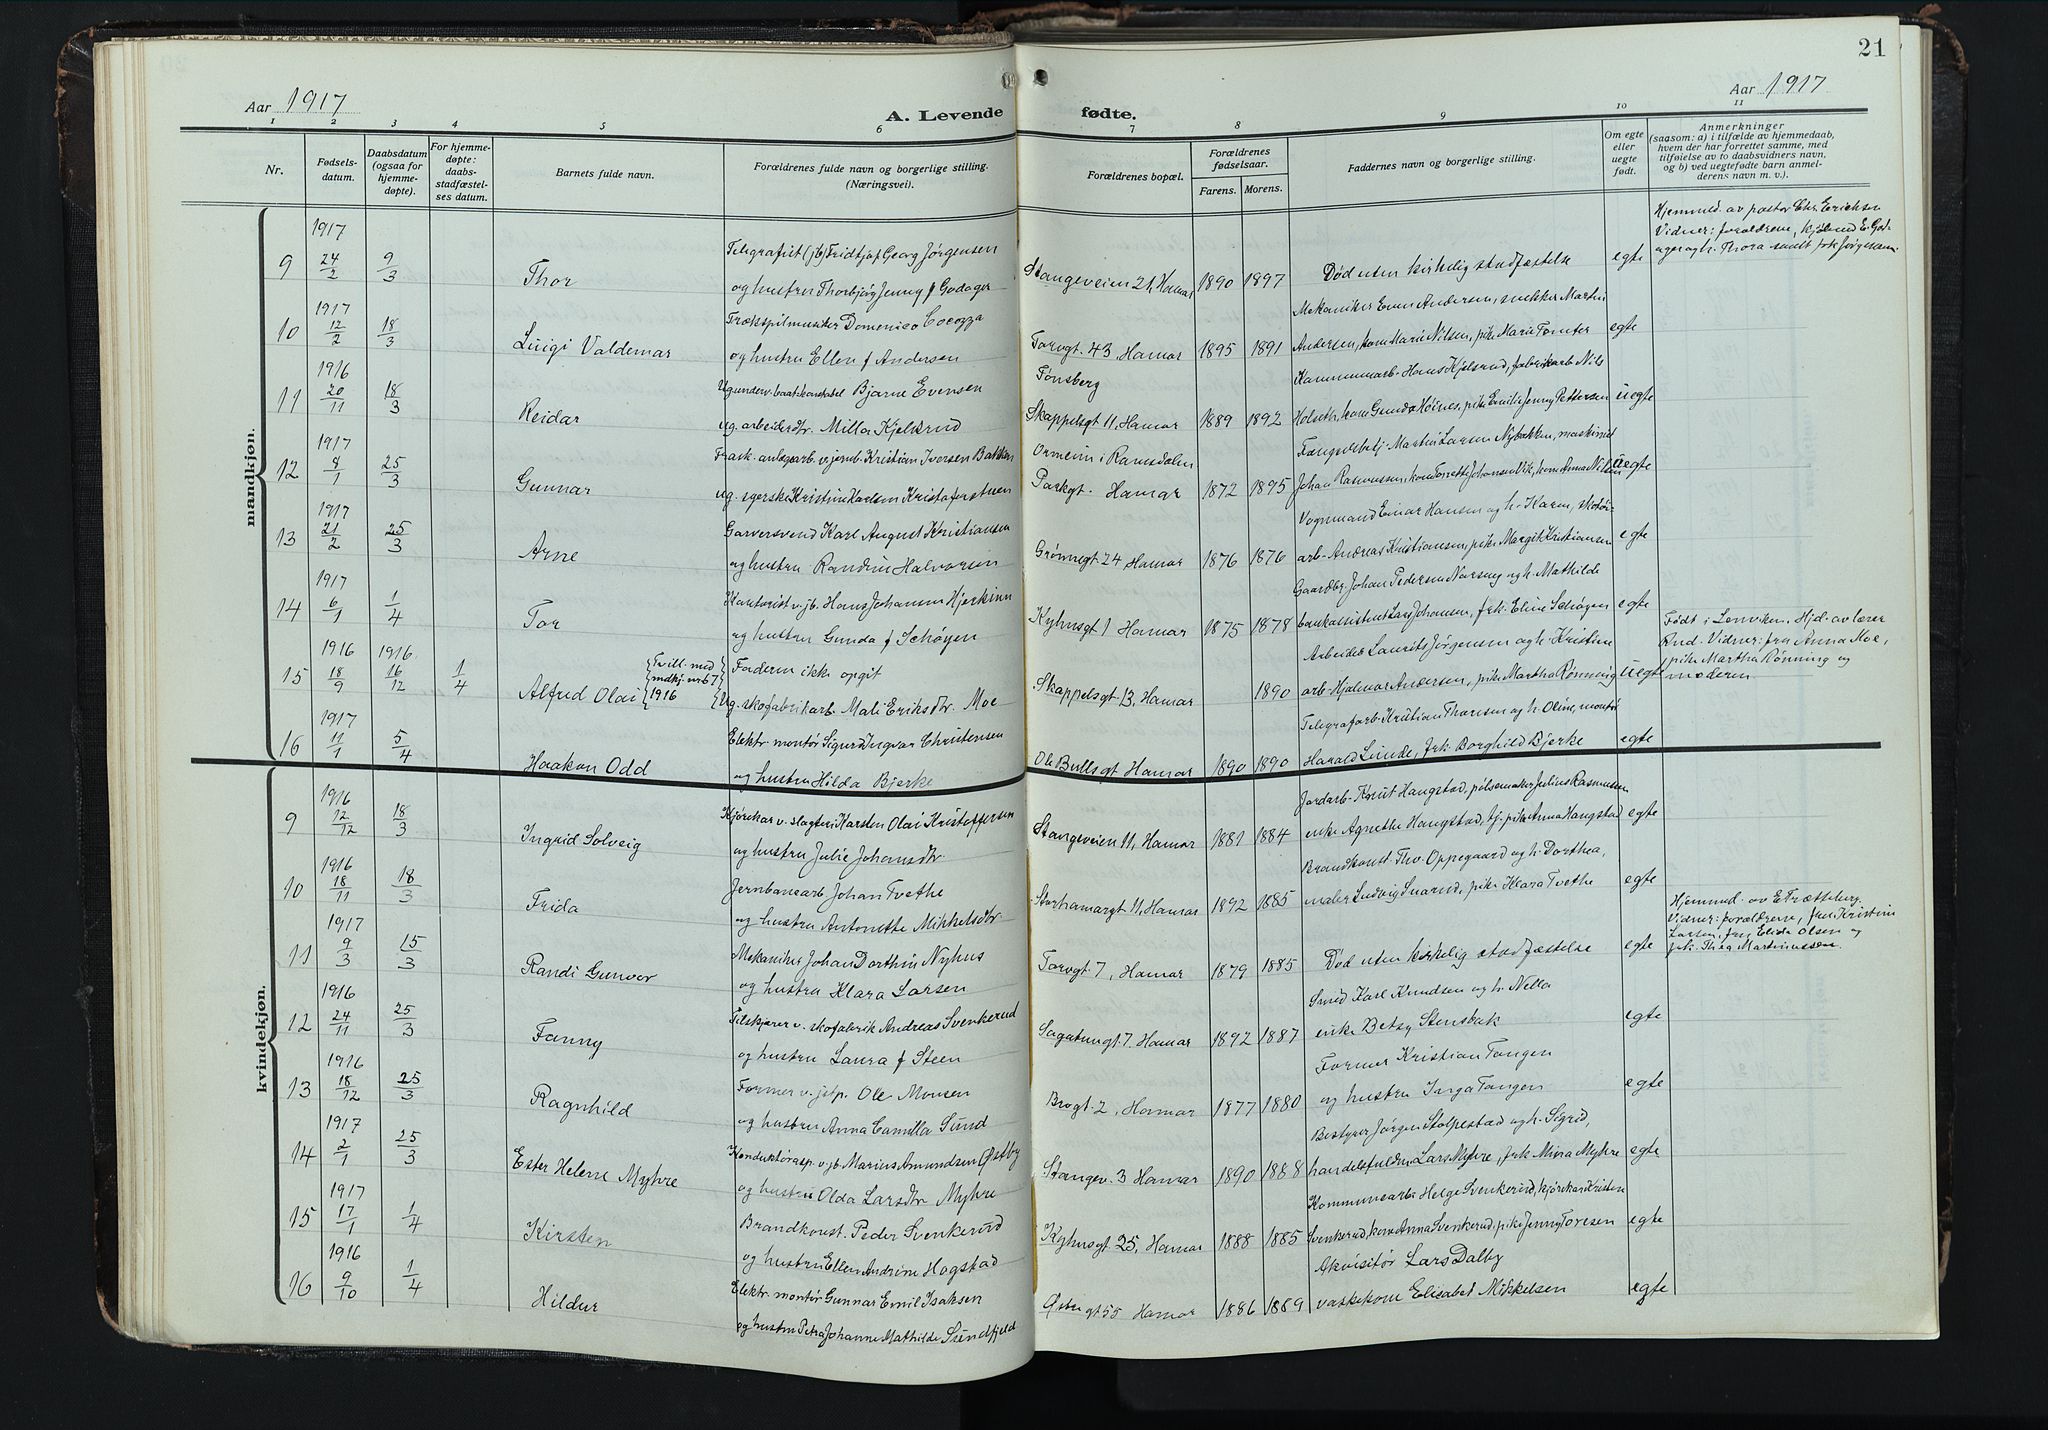 21
Aar 1917
A. Levende
fødte.
Aar 1917
1 2 3 4 5 6 7 8 9 10 11
Nr.
Fødsels-
datum.
Daabsdatum
(ogsaa for
hjemme-
døpte).
For hjemme-
døpte:
daabs-
stadfæstel-
ses datum.
Barnets fulde navn.
Forældrenes fulde navn og borgerlige stilling.
(Næringsvei).
Forældrenes bopæl.
Forældrenes
fødselsaar.
Farens. Morens.
Faddernes navn og borgerlige stilling.
Om egte
eller
uegte
født.
Anmerkninger
(saasom: a) i tilfælde av hjemmedaab,
hvem der har forrettet samme, med
tilføielse av to daabsvidners navn,
og b) ved uegtefødte barn anmel-
derens navn m. v.).
mandkjøn.
1917
9 24/2 9/3 Thor
Telegrafist (jb) Fridtjof Georg Jørgensen
og hustru Thorbjørg Jenny f Godager
Stangeveien 21, Hamar 1890 1897
Død uten kirkelig stadfæstelse
egte
Hjemmed. av pastor Chr. Erichsen
Vidner: forældrene,
1917
10 12/2 18/3 Luigi Valdemar
Trækspilmusiker Domenico Cocozza
og hustru Ellen f Andersen
Torvgt. 43, Hamar 1895 1891
Mekaniker Even Andersen, snekker Martin
Andersen, kone Marie Nilsen, pike Marie Tomter
egte
1916
11 20/11 18/3 Reidar
Ugunderv.baatskonstabel Bjarne Evensen
ug. arbeidersdtr. Milla Kjelsrud
Tønsberg
Skappelsgt 11, Hamar 1889 1892
Kommunearb. Hans Kjelsrud, fabrikarb Nils
Holseth, kone Gunda Høines, pike Emilie Jenny Pettersen
uegte
1917
12 8/1 25/3 Gunnar
Frask. anlægsarb. v. jernb. Kristian Iversen Bakken
ug. syerske Kristine Karlsen Kristoferstuen
Ormeim i Romsdalen
Parkgt. Hamar 1872 1895
Fængselsbetj. Martin Larsen Nybakken, maskinist
Johan Rasmussen, kone Torrette Johansen Vik, kone Anna Nilsen
uegte
1917
13 21/2 25/3 Arne
Garversvend Karl August Kristiansen
og hustru Randine Halvorsen
Grønnegt 24 Hamar 1876 1876
Vognmand Einar Hansen og h. Karen, skotøi-
arb. Andreas Kristiansen, pike Margit Kristiansen
egte
1917
14 6/1 1/4 Tor
Kontorist v. jb. Hans Johannes Hjerkinn
og hustru Gunda f Schøyen
Kyhnsgt 1 Hamar 1875 1878
Gaardbr. Johan Pedersen Narsing og h. Mathilde
bankassistent Lars Johansen, frk. Eline Schøyen
egte
1916 1916
15 18/9 16/12 1/4 Alfred Olai
Tvill. med
mdkj. nr 67
1916
Faderen ikke opgit
Ug. skofabrikarb. Mali Eriksdtr. Moe
Skappelsgt 13, Hamar 1890
Arbeider Laurits Jørgensen og h. Kristine
arb. Hjalmar Andersen, pike Martha Rønning
uegte
Født i Lenviken. Hjd. av lærer
And. Vidner: fru Anna Moe,
pike Martha Rønning og
moderen
1917
16 11/1 5/4 Haakon Odd
Elektr. montør Sigurd Ingvar Christensen
og hustru Hilda Bjerke
Ole Bullsgt Hamar 1890 1890
Telegrafarb. Kristian Thoresen og h. Oline, montør
Harald Lunde, frk. Borghild Bjerke
egte
kvindekjøn.
1916
9 12/12 18/3 Ingrid Solveig
Kjørekar v. slagteri Karsten Olai Kristoffersen
og hustru Julie Johansdtr.
Stangeveien 11, Hamar 1881 1884
Jordarb. Knut Hangstad, pølsemaker Julius Rasmussen
enke Agnethe Hangstad, tj. pike Anna Hangstad
egte
1916
10 18/11 18/3 Frida
Jernbanearb Johan Tvethe
og hustru Antonette Mikkelsdtr.
Storhamargt 11, Hamar 1892 1885
Brandkonst. Thv. Oppegaard og h. Dorthea,
maler Ludvig Svarud, pike Klara Tvethe
egte
1917
11 9/3 15/3 Randi Gunvor
Mekaniker Johan Dorthin Nyhus
og hustru Klara Larsen
Torvgt. 7, Hamar 1879 1885
Død uten kirkelig stadfæstelse
egte
Hjemmed. av E. Trætteberg.
Vidner: forældrene, fru Kristine
Larsen, fru Elida Olsen og
frk. Thea Martinussen.
1916
12 24/11 25/3 Fanny
Tilskjærer v. skofabrik Andreas Svenkerud
og hustru Laura f Steen
Sagatungt. 7. Hamar 1892 1887
Smed Karl Knudsen og h. Nella
enke Betsy Stensbak
egte
1916
13 18/12 25/3 Ragnhild
Former v. jstp. Ole Monsen
og hustru Anna Camilla Sund
Brogt. 2, Hamar 1877 1880
Former Kristian Tangen
og hustru Inga Tangen
egte
1917
14 2/1 25/3 Ester Helene Myhre
Konduktørasp. v. jb. Marius Amundsen Østby
og hustru Olda Larsdtr Myhre
Stangev. 3 Hamar 1890 1888
Bestyrer Jørgen Stolpestad og h. Sigrid,
handelsfuldm. Lars Myhre, frk Mina Myhre
egte
1917
15 17/1 1/4 Kirsten
Brandkonst. Peder Svenkerud
og hustru Ellen Andrine Hagstad
Kyhnsgt 25, Hamar 1888 1885
Kommunearb Helge Svenkerud, kjørekar Kristen
Svenkerud, kone Anna Svenkerud, pike Jenny Toresen
egte
1916
16 9/10 1/4 Hildur
Elektr. montør Gunnar Emil Isaksen
og hustru Petra Johanne Mathilde Sundfjeld
Østregt 55 Hamar 1886 1889
Akvisitør Lars Dalby
vaskekone Elisabet Mikkelsen
egte